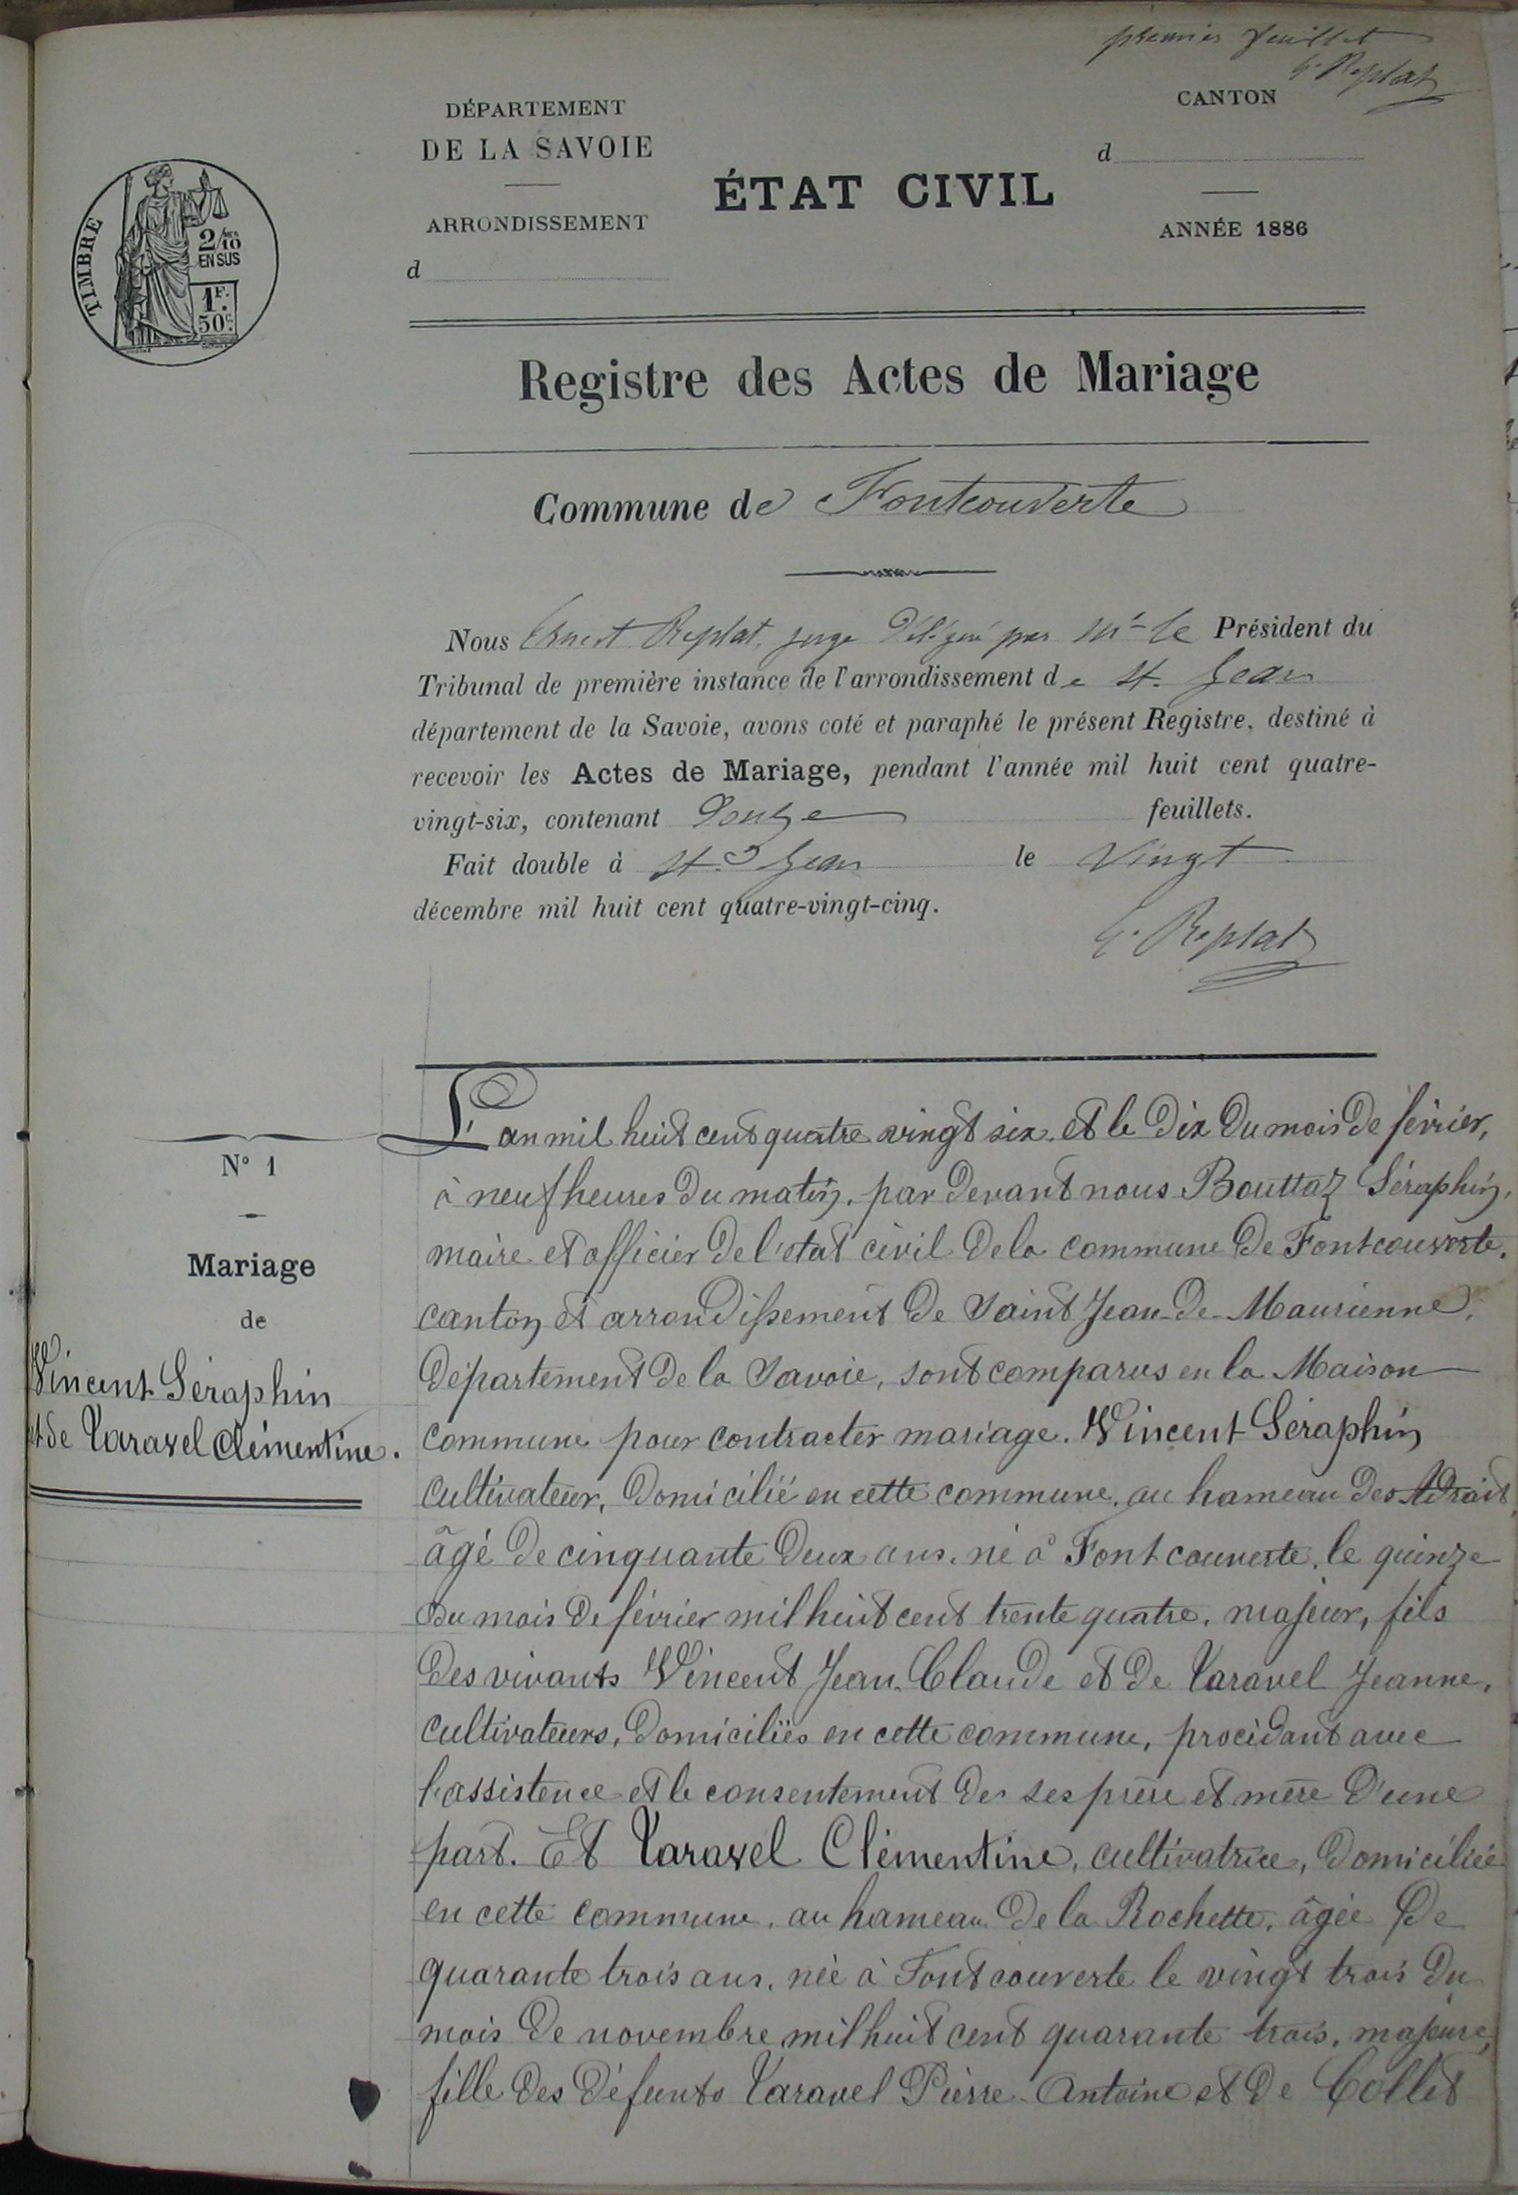 premier feuillet
E. Replat
DÉPARTEMENT
DE LA SAVOIE
ARRONDISSEMENT
d
ÉTAT CIVIL
CANTON
d
ANNÉE 1886
TIMBRE
2/10 mes
EN SUS
1F.
50c.
Registre des Actes de Mariage
Commune de Fontcouverte
Nous Ernest Replat, juge délégué par Mr le Président du
Tribunal de première instance de l'arrondissement de St. Jean
département de la Savoie, avons coté et paraphé le présent Registre, destiné à
recevoir les Actes de Mariage, pendant l'année mil huit cent quatre-
vingt-six, contenant Douze feuillets.
Fait double à St. Jean le Vingt
décembre mil huit cent quatre-vingt-cinq.
E. Replat
N° 1
Mariage
de
Vincent Séraphin
et de Varavel Clémentine.
L'an mil huit cent quatre vingt six, et le dix du mois de février,
à neuf heures du matin, par devant nous Bouttaz Séraphin,
maire et officier de l'état civil de la commune de Fontcouverte,
canton et arrondissement de Saint Jean-de-Maurienne,
département de la Savoie, sont comparus en la Maison
commune pour contracter mariage. Vincent Séraphin
cultivateur, domicilié en cette commune, au hameau des Adrait,
âgé de cinquante deux ans, né à Fontcouverte, le quinze
du mois de février mil huit cent trente quatre, majeur, fils
des vivants Vincent Jean-Claude et de Varavel Jeanne,
cultivateurs, domiciliés en cette commune, procédant avec
l'assistence et le consentement de ses père et mère d'une
part. Et Varavel Clémentine, cultivatrice, domiciliée
en cette commune, au hameau de la Rochette, âgée de
quarante trois ans, née à Fontcouverte le vingt trois du
mois de novembre mil huit cent quarante trois, majeure,
fille des défunts Varavel Pierre-Antoine et de Collet